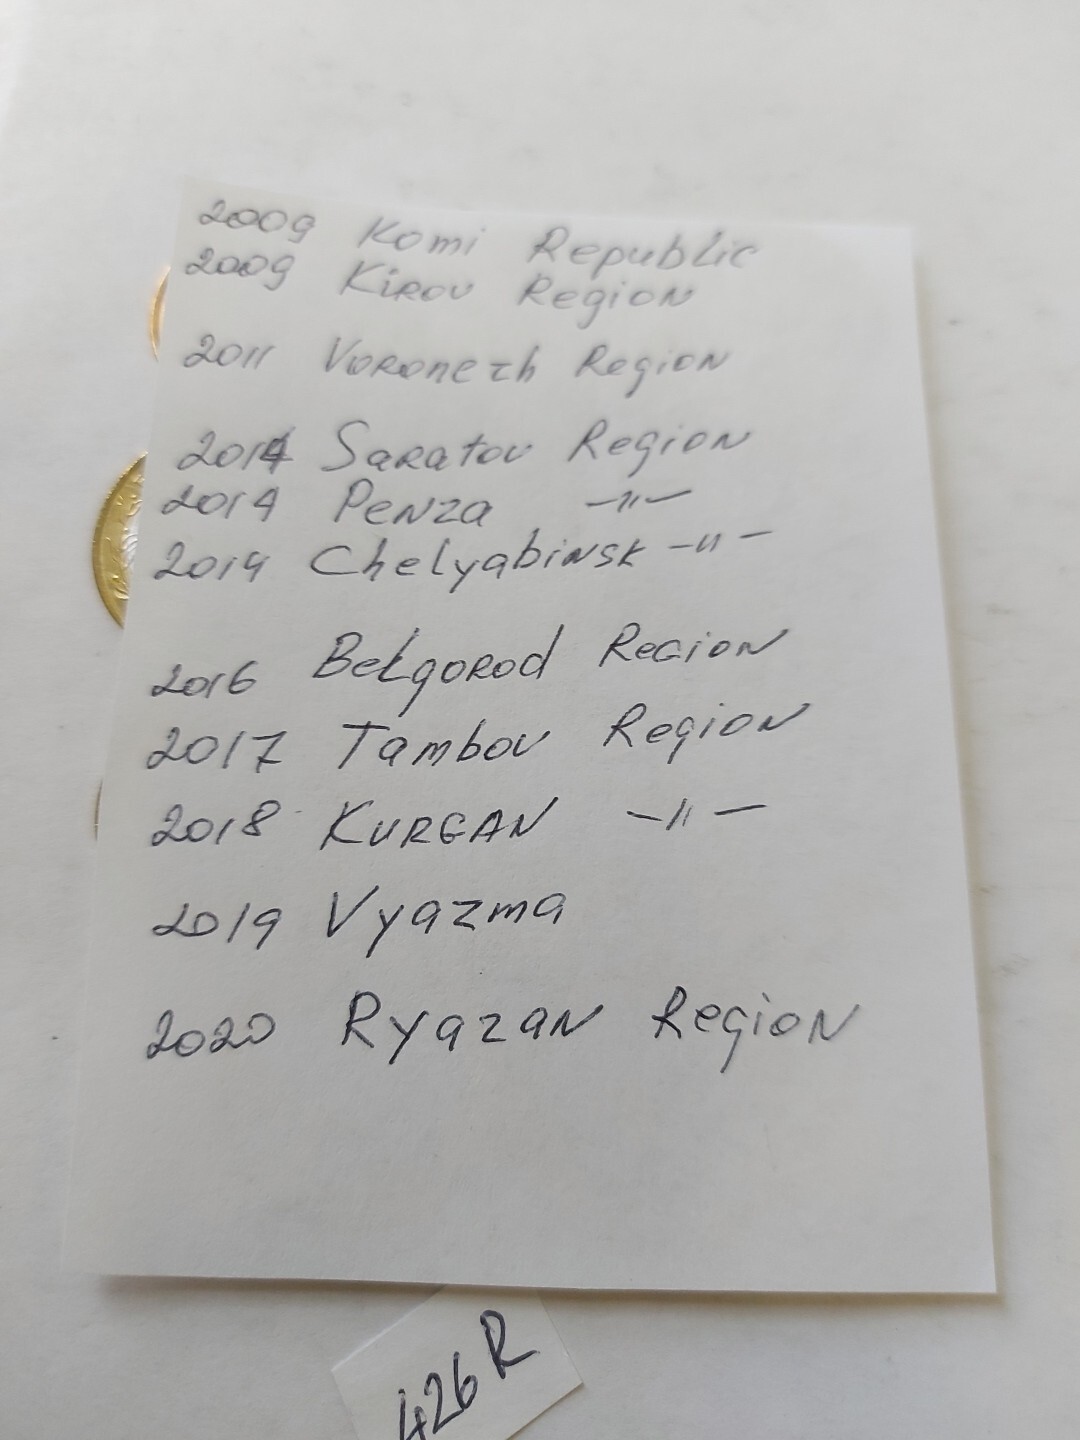 2009 Komi Republic
2009 Kirov Region
2011 Voronezh Region
2014 Saratov Region
2014 Penza —〃—
2014 Chelyabinsk —〃—
2016 Belgorod Region
2017 Tambov Region
2018 KURGAN —〃—
2019 Vyazma
2020 Ryazan Region
426R